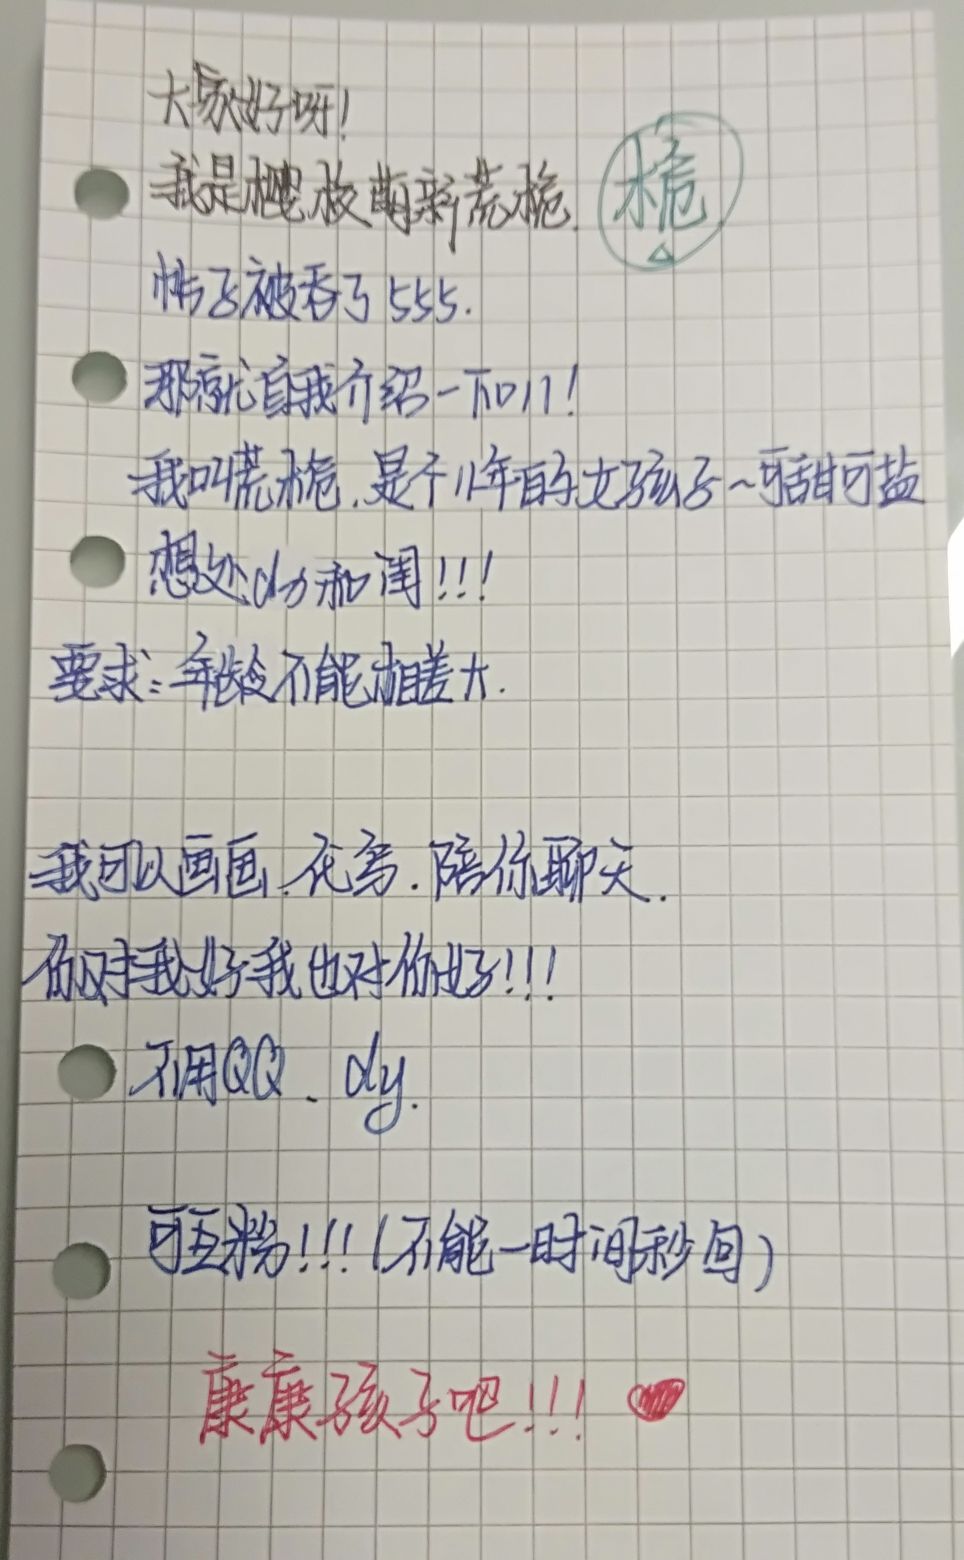 大家好呀!
我是樱校萌新荒桅.
桅
帖子被吞了555.
那就自我介绍一下叭!
我叫荒桅.是个11年的女孩子~可甜可盐
想处dy和闺!!!
要求:年龄不能相差大.
我可以画画.花鸟.陪你聊天.
你对我好我也对你好!!!
不用QQ、dy.
可互粉!!!(不能一时间秒回)
康康孩子吧!!!